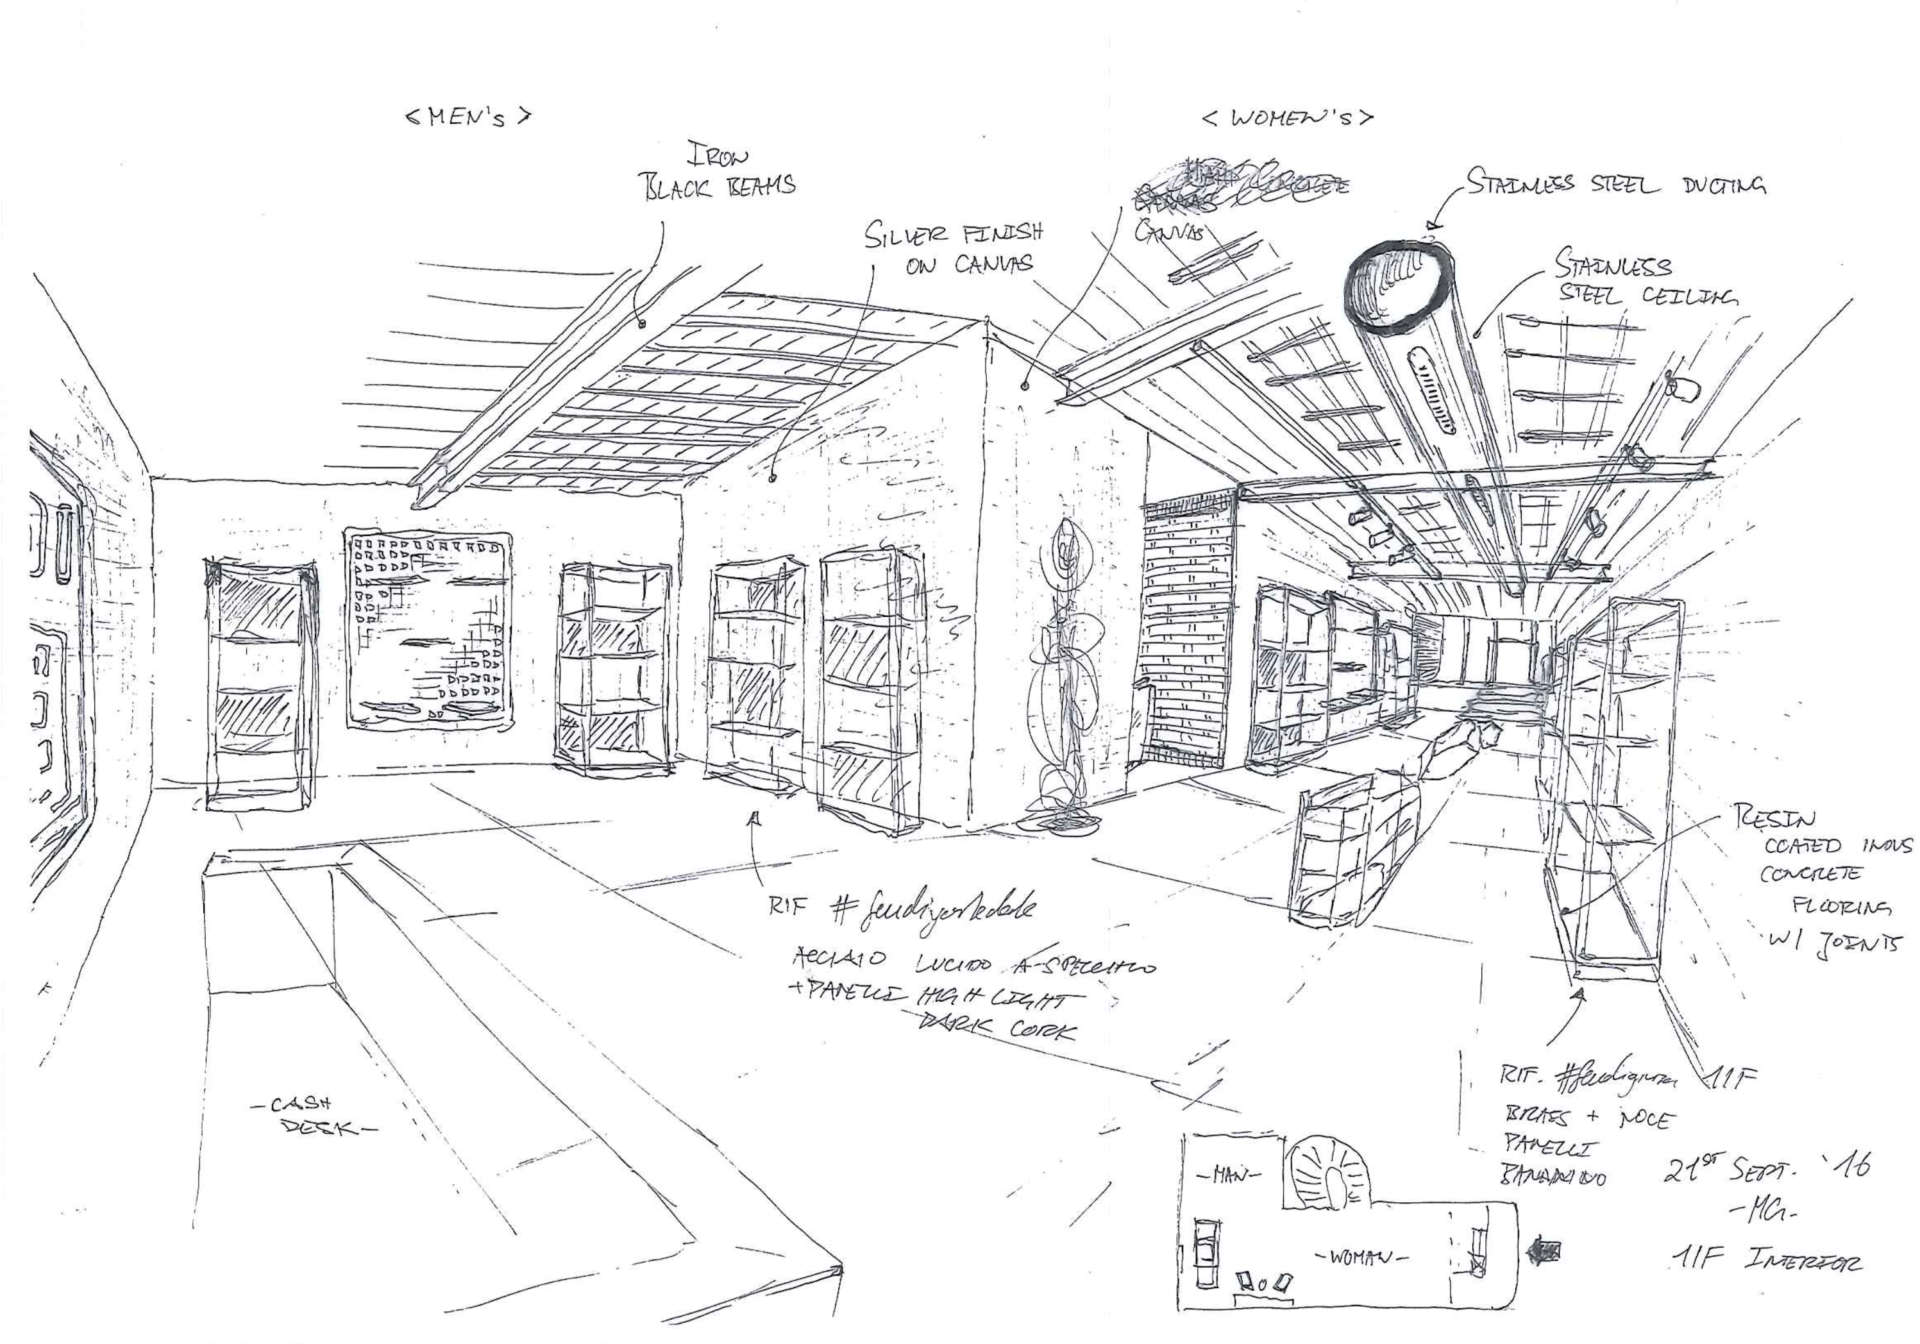 <MEN's>
<WOMEN's>
IRON
BLACK BEAMS
SILVER FINISH
ON CANVAS
CANVAS
STAINLESS STEEL DUCTING
STAINLESS
STEEL CEILING
RESIN
COATED
CONCRETE
FLOORING
W/ JOINTS
RIF #
ACCIAIO LUCIDO A SPECCHIO
+PANELLI HIGH LIGHT
DARK CORK
-CASH
DESK-
RIF. # 1/F
BRASS + NOCE
PANELLI
-MAN-
-WOMAN-
21ST SEPT. '16
-MG-
1/F INTERIOR